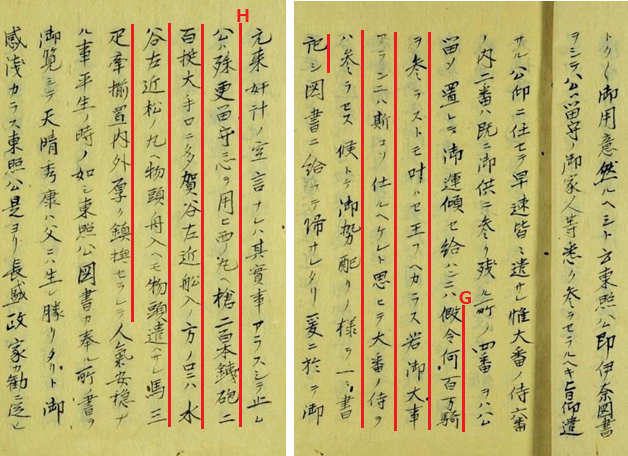 トク〱御用意然ルヘシト云東照公即伊奈図書
ヲシテ公ハ留守ノ御家人等悉ク参ラセラルヘキ旨仰遣
サル公仰ニ任セテ早速皆ミ遣サレ惟大番ノ侍六番
ノ内二番ハ既ニ御供ニ参リ残ル所ノ四番ヲハ公
留メ置レテ御運傾セ給ハンニハ假令何百万騎
G
ヲ参ラストモ叶ハセ玉フヘカラス若御大事
アランニハ斯コソ仕ルヘケレト思ヒテ大番ノ侍ヲ
ハ参ラセス候トテ御勢配リノ様ヲ一ミ書
記シ図書ニ給ハテ帰サレタリ爰ニ於テ御
元来奸計ノ空言ナレハ其實事アラスシテ止ム
H
公ハ殊更留守ニ意ヲ用ヒ西ノ丸ヘ槍二百本鉄砲二
百挺大手口ニ多賀谷左近船入ノ方ノ口ニハ水
谷左近松ノ丸ヘ物頭舟入ヘモ物頭遣サレ馬三
疋牽揃置内外厚ク鎮撫セラレテ人氣安穏ナ
ル事平生ノ時ノ如シ東照公図書カ奉ル所ノ書ヲ
御覧シテ天晴秀康ハ父ニハ生レ勝リタリト御
感浅カラス東照公是ヨリ長盛政家カ勧ニ従ヒ